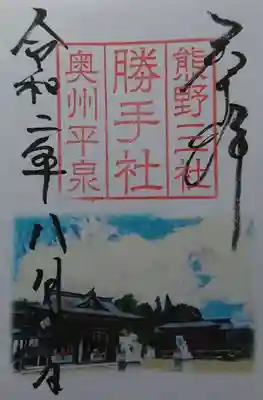 奉拝
熊野三社
勝手社
奥州平泉
令和二年八月 日